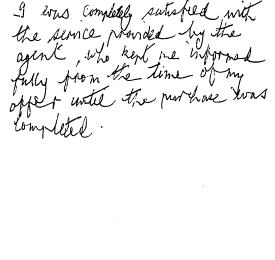 I was completely satisfied with
the service provided by the
agent, who kept me informed
fully from the time of my
offer until the purchase was
completed.